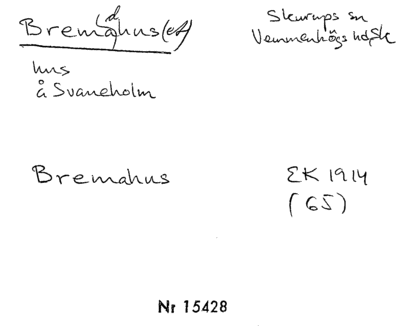 Bremahus(et)
d
Skurups sn
Vemmenhögs hd, Sk
hus
å Svaneholm
Bremahus
EK 1914
(65)
Nr 15428